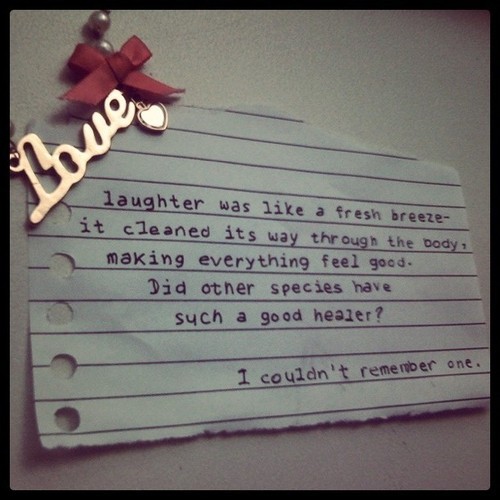 Love
laughter was like a fresh breeze-
it cleaned its way through the body,
making everything feel good.
Did other species have
such a good healer?
I couldn't remember one.